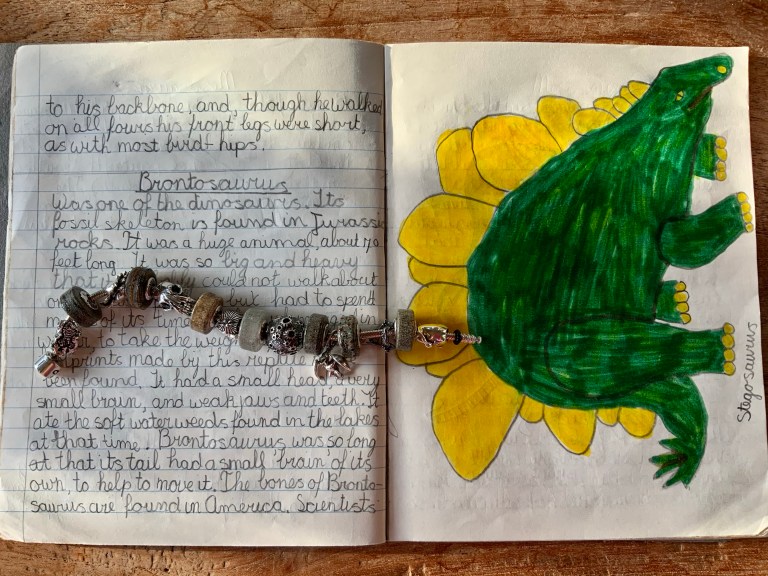 to his backbone, and, though he walked
on all fours hys front legs were short,
as with most bird-hips.
Brontosaurus
was one of the dinosaurs. Its
fossil skeleton is found in Jurassic
rocks. It was a huge animal, about 70
feet long. It was so big and heavy
that could not walk about
on but had to spend
of its time in
to take the
footprints made by this reptile
been found. It had a small head, a very
small brain, and weak jaws and teeth. It
ate the soft water weeds found in the lakes
at that time. Brontosaurus, was so long
at that its tail had a small 'brain' of its
own, to help to move it. The bones of Bronto-
saurus are found in America. Scientists
Stegosaurus